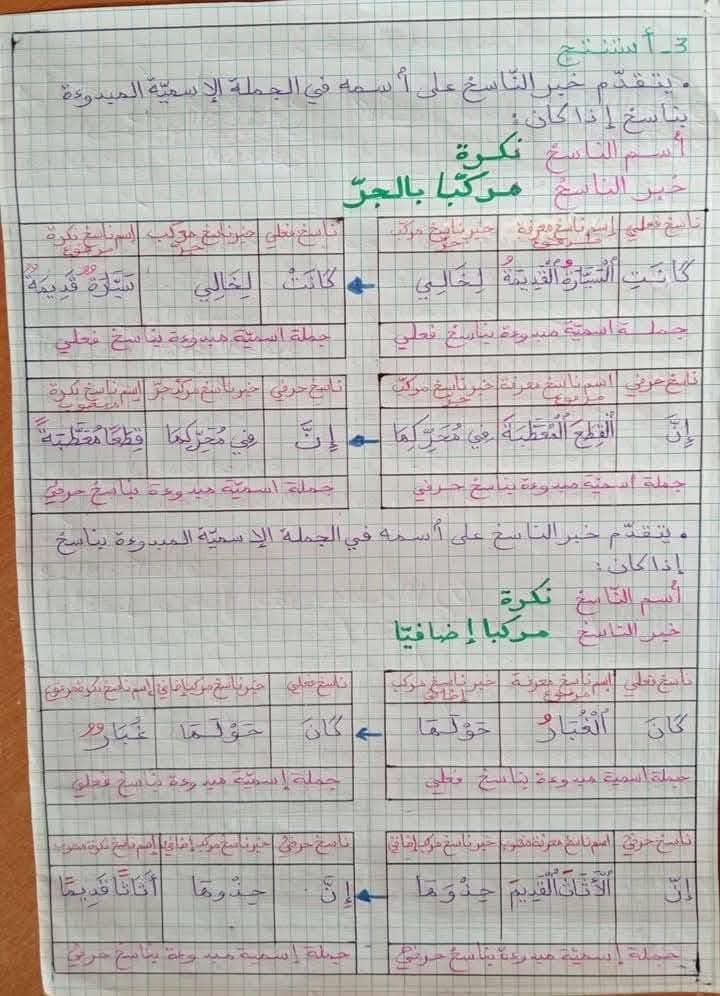 3- أستنتج
• يتقدّم خبر النّاسخ على أسمه في الجملة الإسميّة المبدوءة
بناسخ إذا كان :
أسم الناسخ نكرة
خبر الناسخ مركّبا بالجرّ
ناسخ فعلي إسم ناسخ معرفة مرفوع خبر ناسخ مركب جرّ
كَانَتِ السَّيَّارَةُ الْقَدِيمَةُ لِخَالِي
جملة اسميّة مبدوءة بناسخ فعلي
ناسخ فعلي خبر ناسخ مركب جرّ إسم ناسخ نكرة مرفوع
كَانَتْ لِخَالِي سَيَّارَةٌ قَدِيمَةٌ
جملة اسميّة مبدوءة بناسخ فعلي
ناسخ حرفي إسم ناسخ معرفة خبر ناسخ مركب جرّ
إِنَّ الْقِطَعَ الْمُعَطَّبَةَ فِي مُحَرِّكِهَا
جملة اسميّة مبدوءة بناسخ حرفي
ناسخ حرفي خبر ناسخ مركب جرّ إسم ناسخ نكرة
إِنَّ فِي مُحَرِّكِهَا قِطَعًا مُعَطَّبَةً
جملة اسميّة مبدوءة بناسخ حرفي
• يتقدّم خبر الناسخ على أسمه في الجملة الإسميّة المبدوءة بناسخ
إذا كان :
أسم النّاسخ نكرة
خبر الناسخ مركبا إضافيّا
ناسخ فعلي إسم ناسخ معرفة مرفوع خبر ناسخ مركب إضافي
كَانَ الْغُبَارُ حَوْلَهَا
جملة اسمية مبدوءة بناسخ فعلي
ناسخ فعلي خبر ناسخ مركب إضافي إسم ناسخ نكرة مرفوع
كَانَ حَوْلَهَا غُبَارٌ
جملة إسميّة مبدوءة بناسخ فعلي
ناسخ حرفي اسم ناسخ معرفة منصوب خبر ناسخ مركب إضافي
إِنّ الْأَثَاثَ الْقَدِيمَ حِذْوَهَا
جملة إسميّة مبدوءة بناسخ حرفي
ناسخ حرفي خبر ناسخ مركب إضافي إسم ناسخ نكرة منصوب
إِنَّ حِذْوهَا أَثَاثًا قَدِيمًا
جملة إسمية مبدوءة بناسخ حرفي